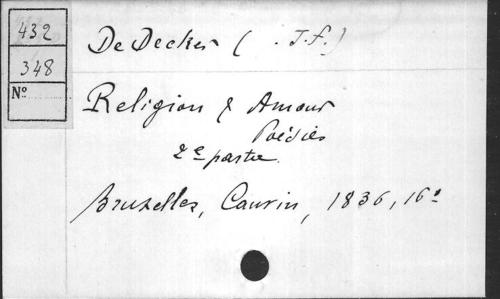 432
348
No
De Decker ( . J.f.)
Religion & Amour
Poésies
2e partie.
Bruxelles, Cauvin, 1836, 16°